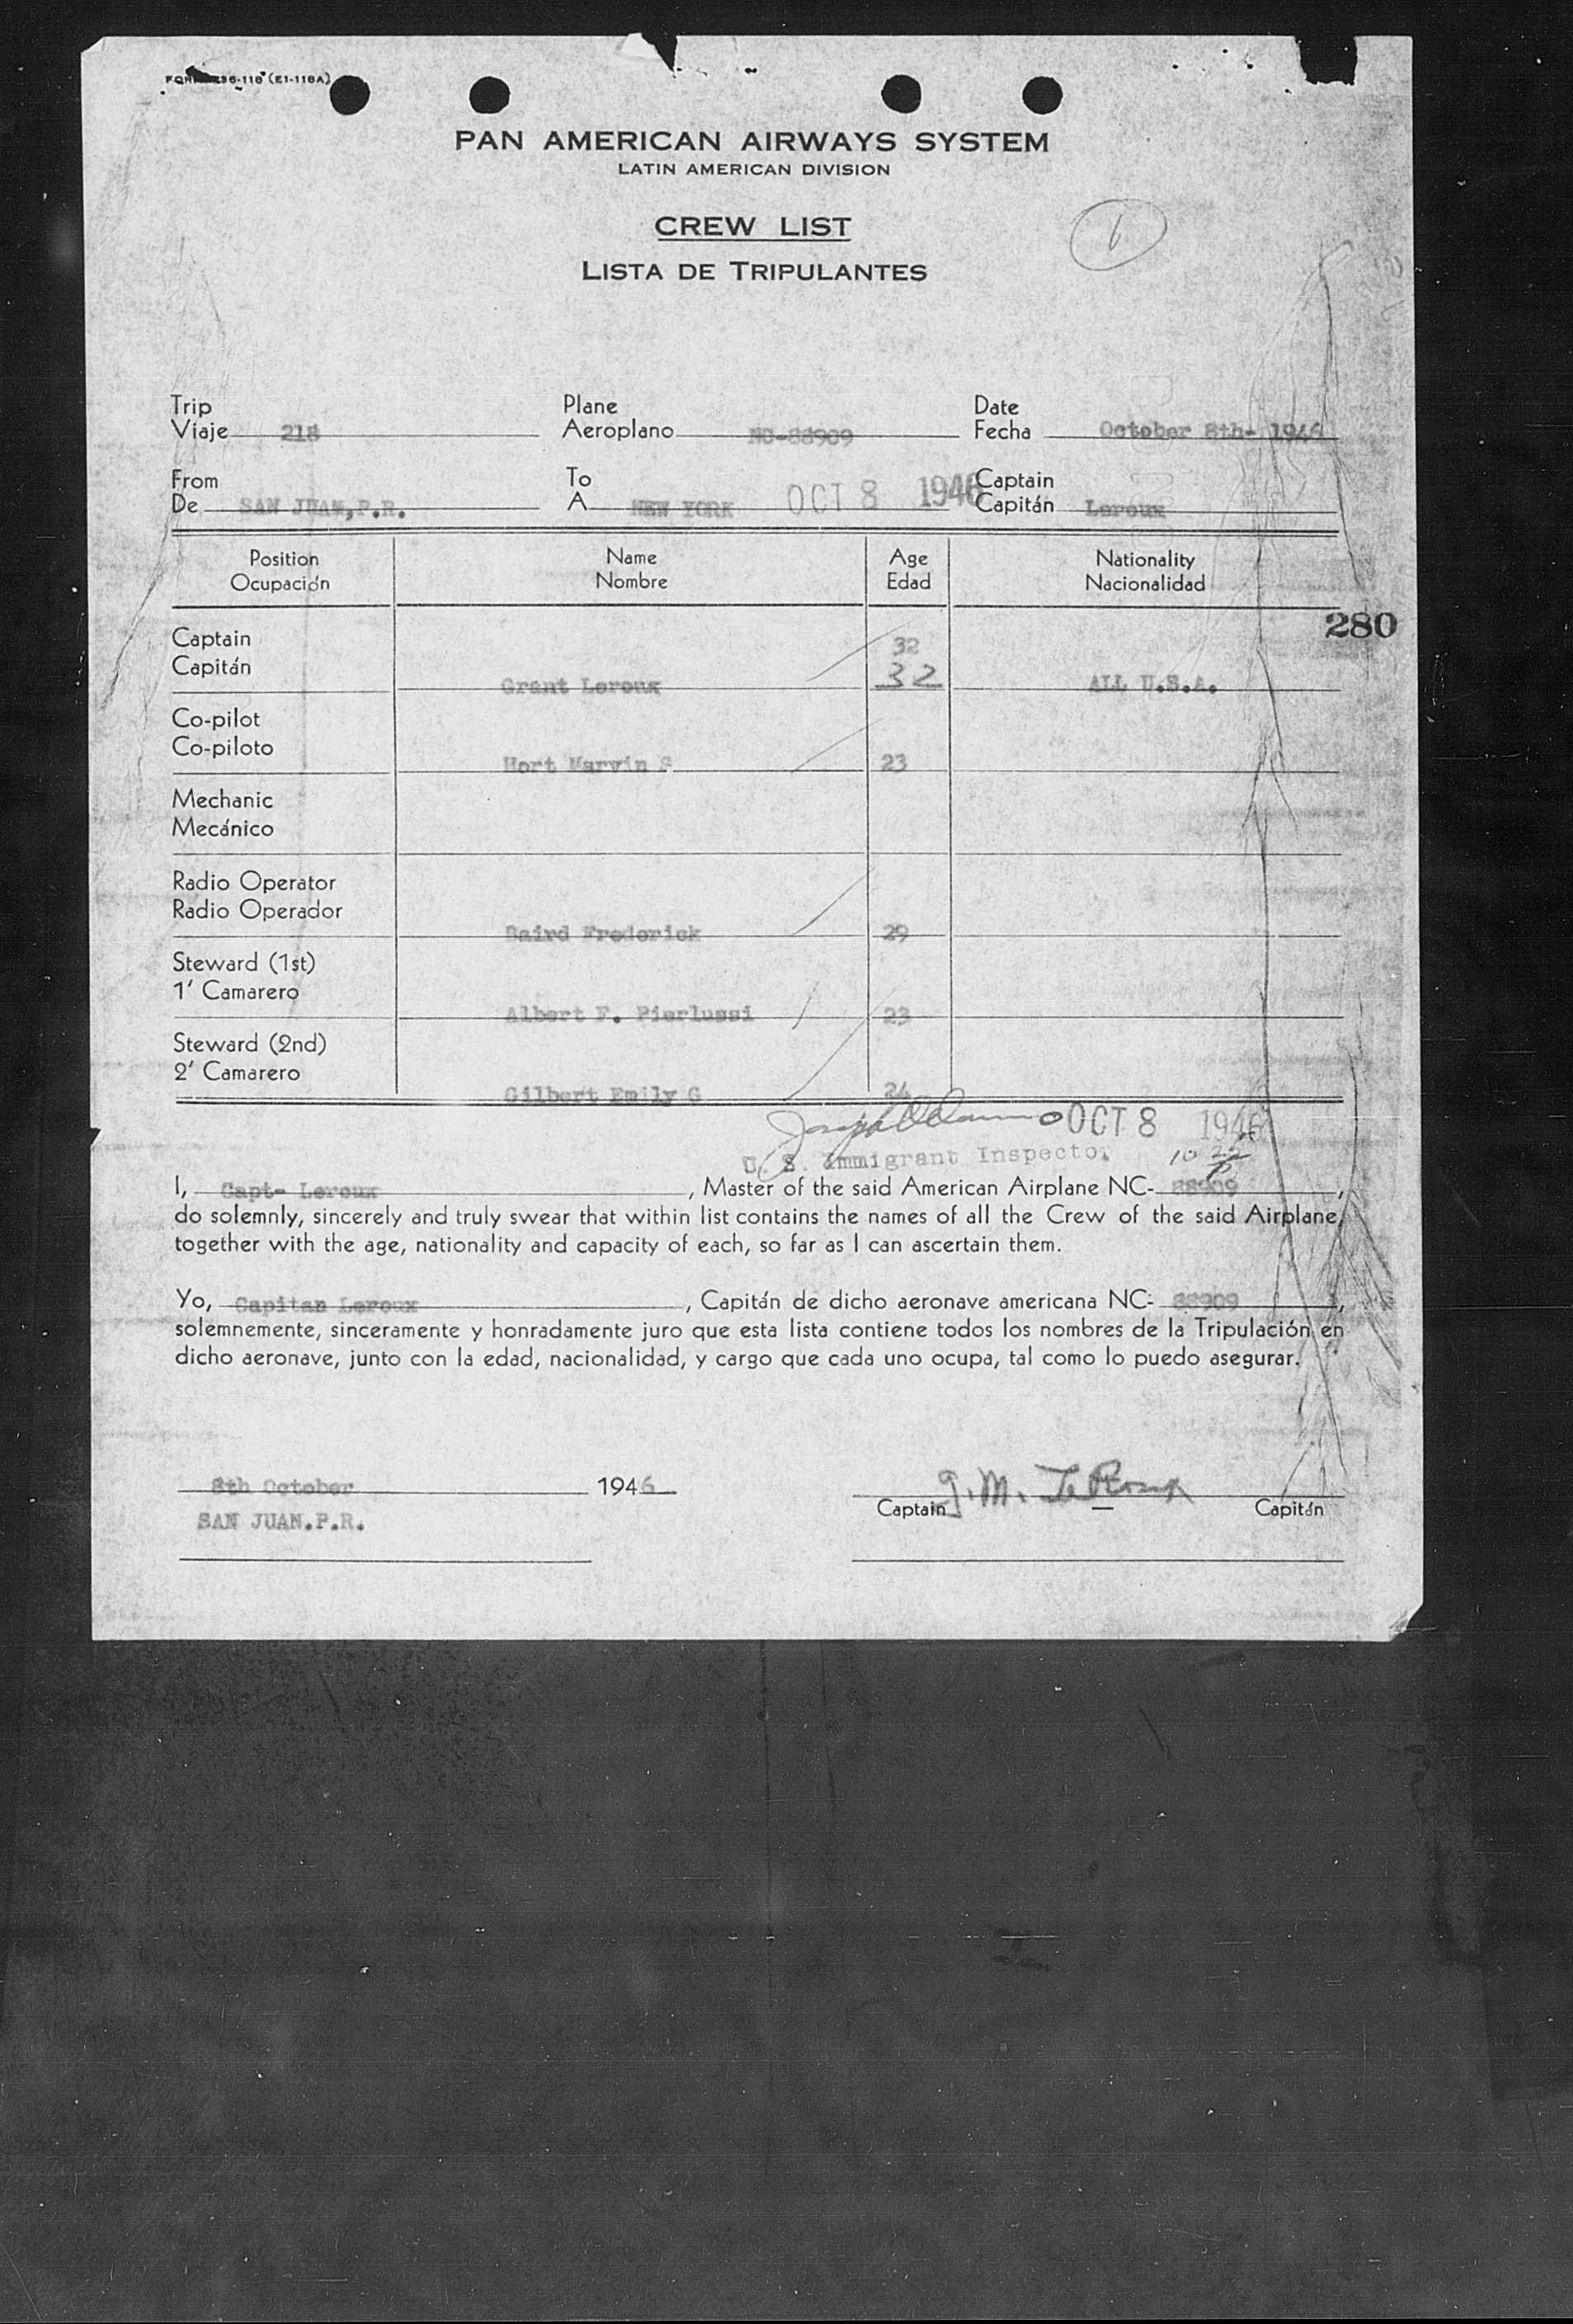 (E1-118A)
PAN AMERICAN AIRWAYS SYSTEM
LATIN AMERICAN DIVISION
CREW LIST
LISTA DE TRIPULANTES
1
Trip
Viaje 218
Plane
Aeroplano NC-88909
Date
Fecha October 8th- 1946
From
De SAN JUAN,P.R.
To
A NEW YORK OCT 8 1946
Captain
Capitán Leroux
Position Name Age Nationality
Ocupación Nombre Edad Nacionalidad
280
Captain 32
Capitán Grant Leroux 32 ALL U.S.A.
Co-pilot
Co-piloto Hort Marvin S 23
Mechanic
Mecánico
Radio Operator
Radio Operador Baird Frederick 29
Steward (1st)
1' Camarero Albert F. Pierlussi 23
Steward (2nd)
2' Camarero Gilbert Emily G 24
OCT 8 1946
U. S. Immigrant Inspector
I, Capt- Leroux, Master of the said American Airplane NC- 88909,
do solemnly, sincerely and truly swear that within list contains the names of all the Crew of the said Airplane,
together with the age, nationality and capacity of each, so far as I can ascertain them.
Yo, Capitan Leroux, Capitán de dicho aeronave americana NC- 88909,
solemnemente, sinceramente y honradamente juro que esta lista contiene todos los nombres de la Tripulación en
dicho aeronave, junto con la edad, nacionalidad, y cargo que cada uno ocupa, tal como lo puedo asegurar.
8th October 1946
G. M. LeRoux
Captain Capitán
SAN JUAN.P.R.